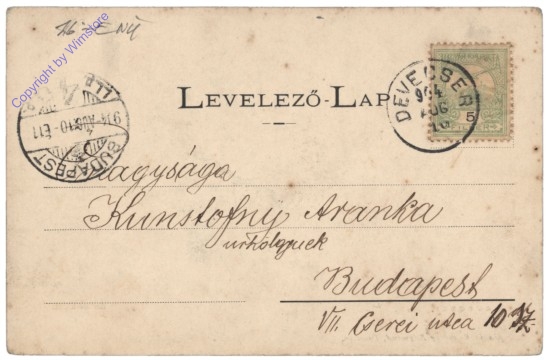 Copyright by Wimstore
LEVELEZŐ-LAP
DEVECSER
904
AUG
10
5
914 AUG 10 - E11
BUDAPEST
Nagysága
Kunstofny Aranka
úrhölgynek
Budapest
VII. Cserei utca 10